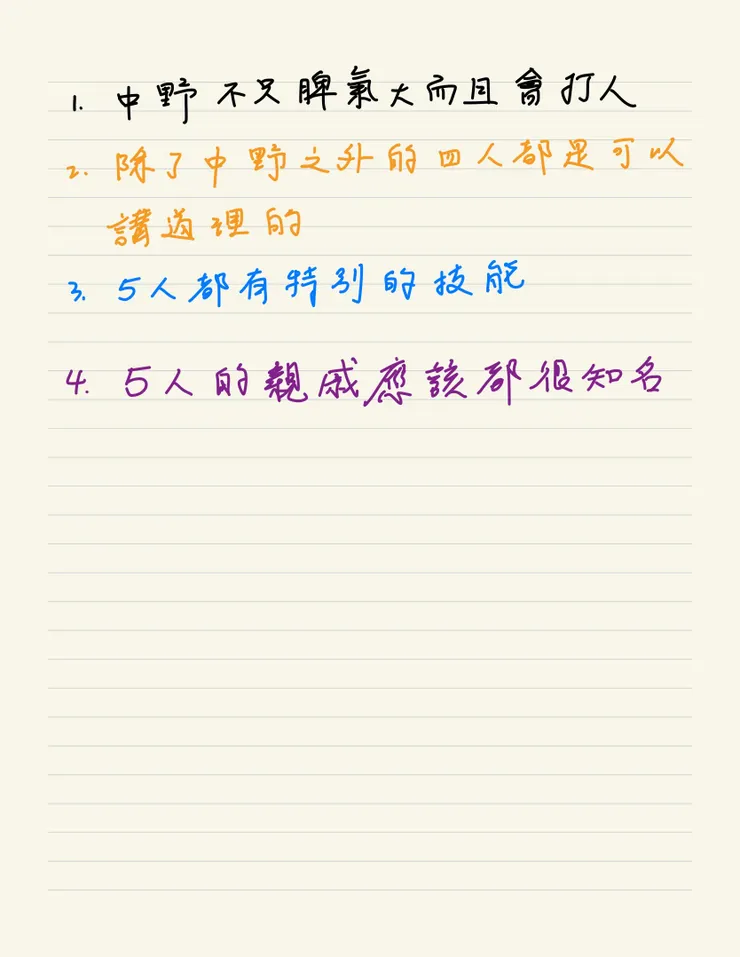 1. 中野不只脾氣大而且會打人
2. 除了中野之外的四人都是可以
講道理的
3. 5人都有特別的技能
4. 5人的親戚應該都很知名